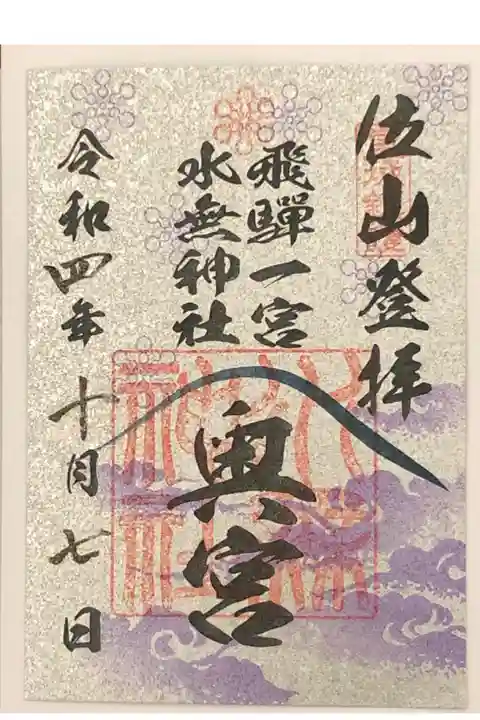 位山登拝
飛騨一宮
水無神社
奥宮
令和四年十月七日